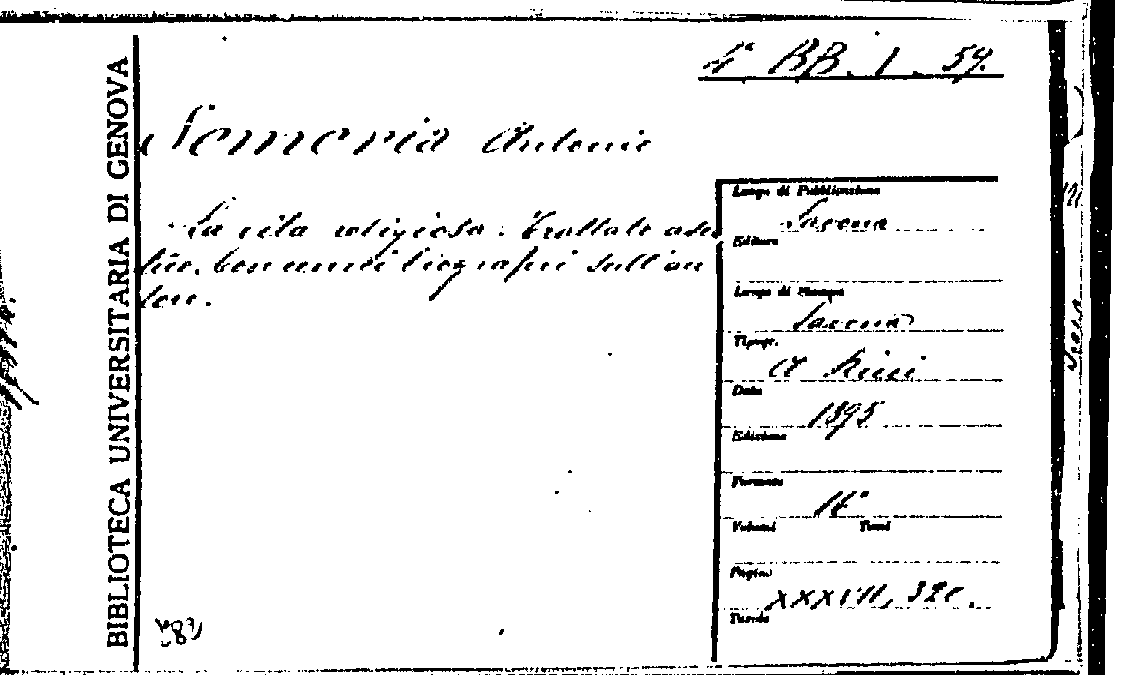 BIBLIOTECA UNIVERSITARIA DI GENOVA
4ª BB. 1. 54.
Semeria Antonio
La vita religiosa. Trattato asce
tico. Con cenni biografici sull'au
tore.
Luogo di Pubblicazione
Savona
Editore
Luogo di Stampa
Savona
Tipogr.
A Ricci
Data
1895
Edizione
Formato
16°
Volumi Tomi
Pagine
XXXVII, 320.
Tavole